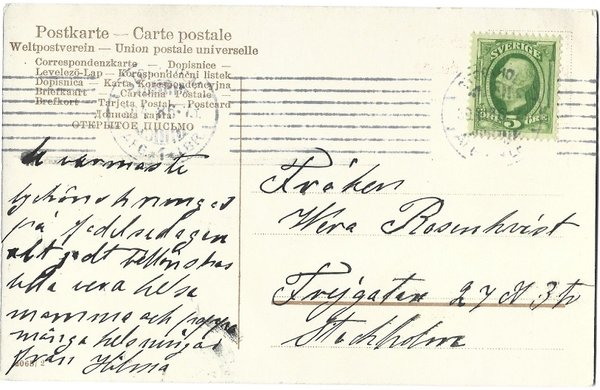 Postkarte — Carte postale
Weltpostverein — Union postale universelle
Correspondenzkarte — Dopisnice —
Levelező-Lap — Korespondenční listek
Dopisnica — Karta Korespondencyjna
Briefkaart — Cartolina Postale
Brefkort — Tarjeta Postal — Postcard
Дописна карта
ОТКРЫТОЕ ПИСЬМО
SVERIGE
5
ÖRE
varmaste
lyckönskningar
på födelsedagen
allt godt tillönskas
lilla vera helsa
mamma och pappa
många helsningar
från Hilma
Fröken
Wera Rosenkvist
Frejgatan 27
Stockholm